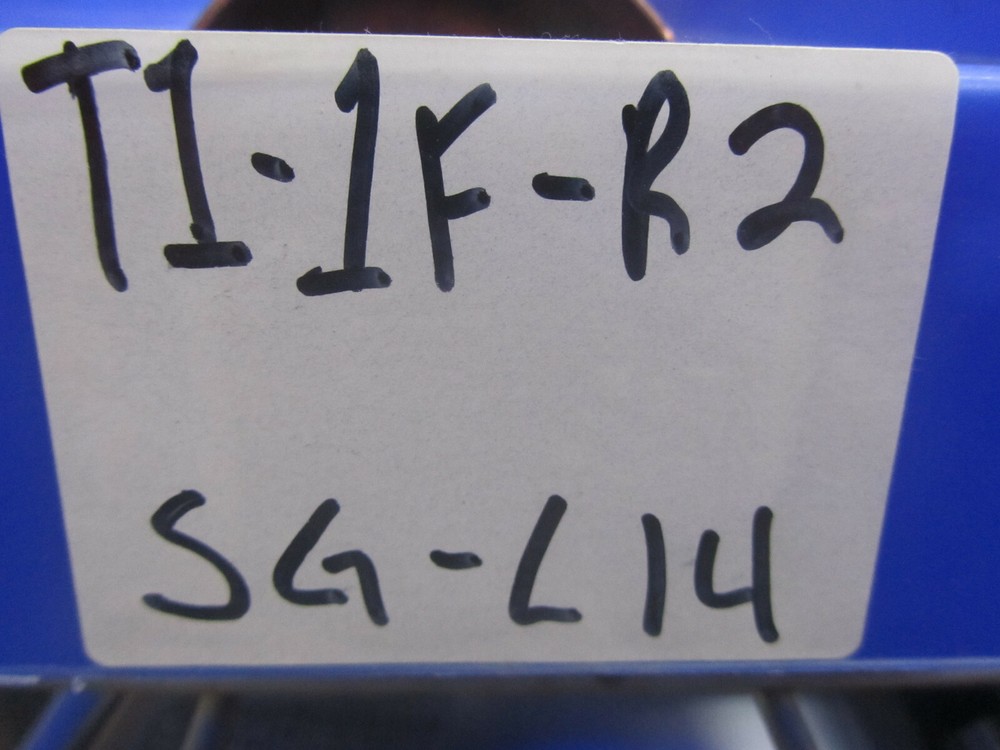 T1-1F-R2
SG-L14